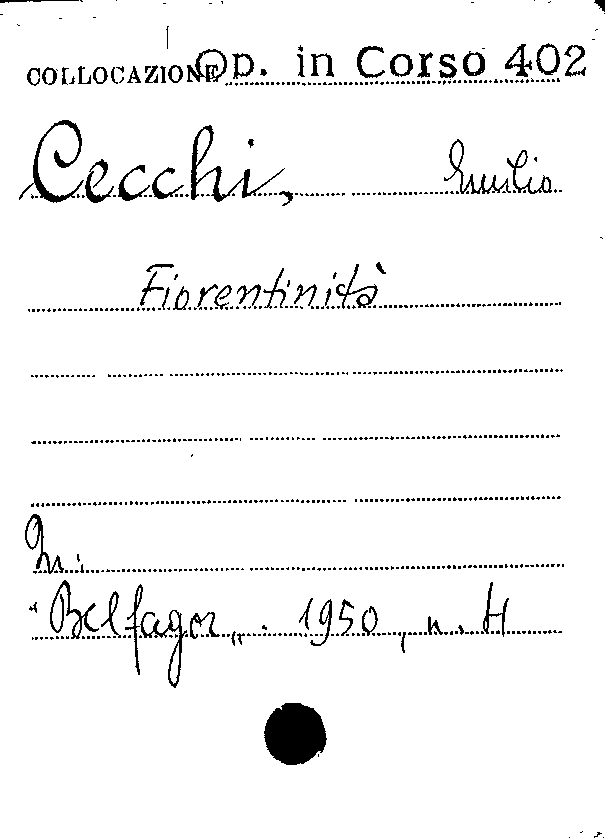 COLLOCAZIONE Op. in Corso 402
Cecchi, Emilio
Fiorentinità
In:
"Belfagor". 1950, n. 4